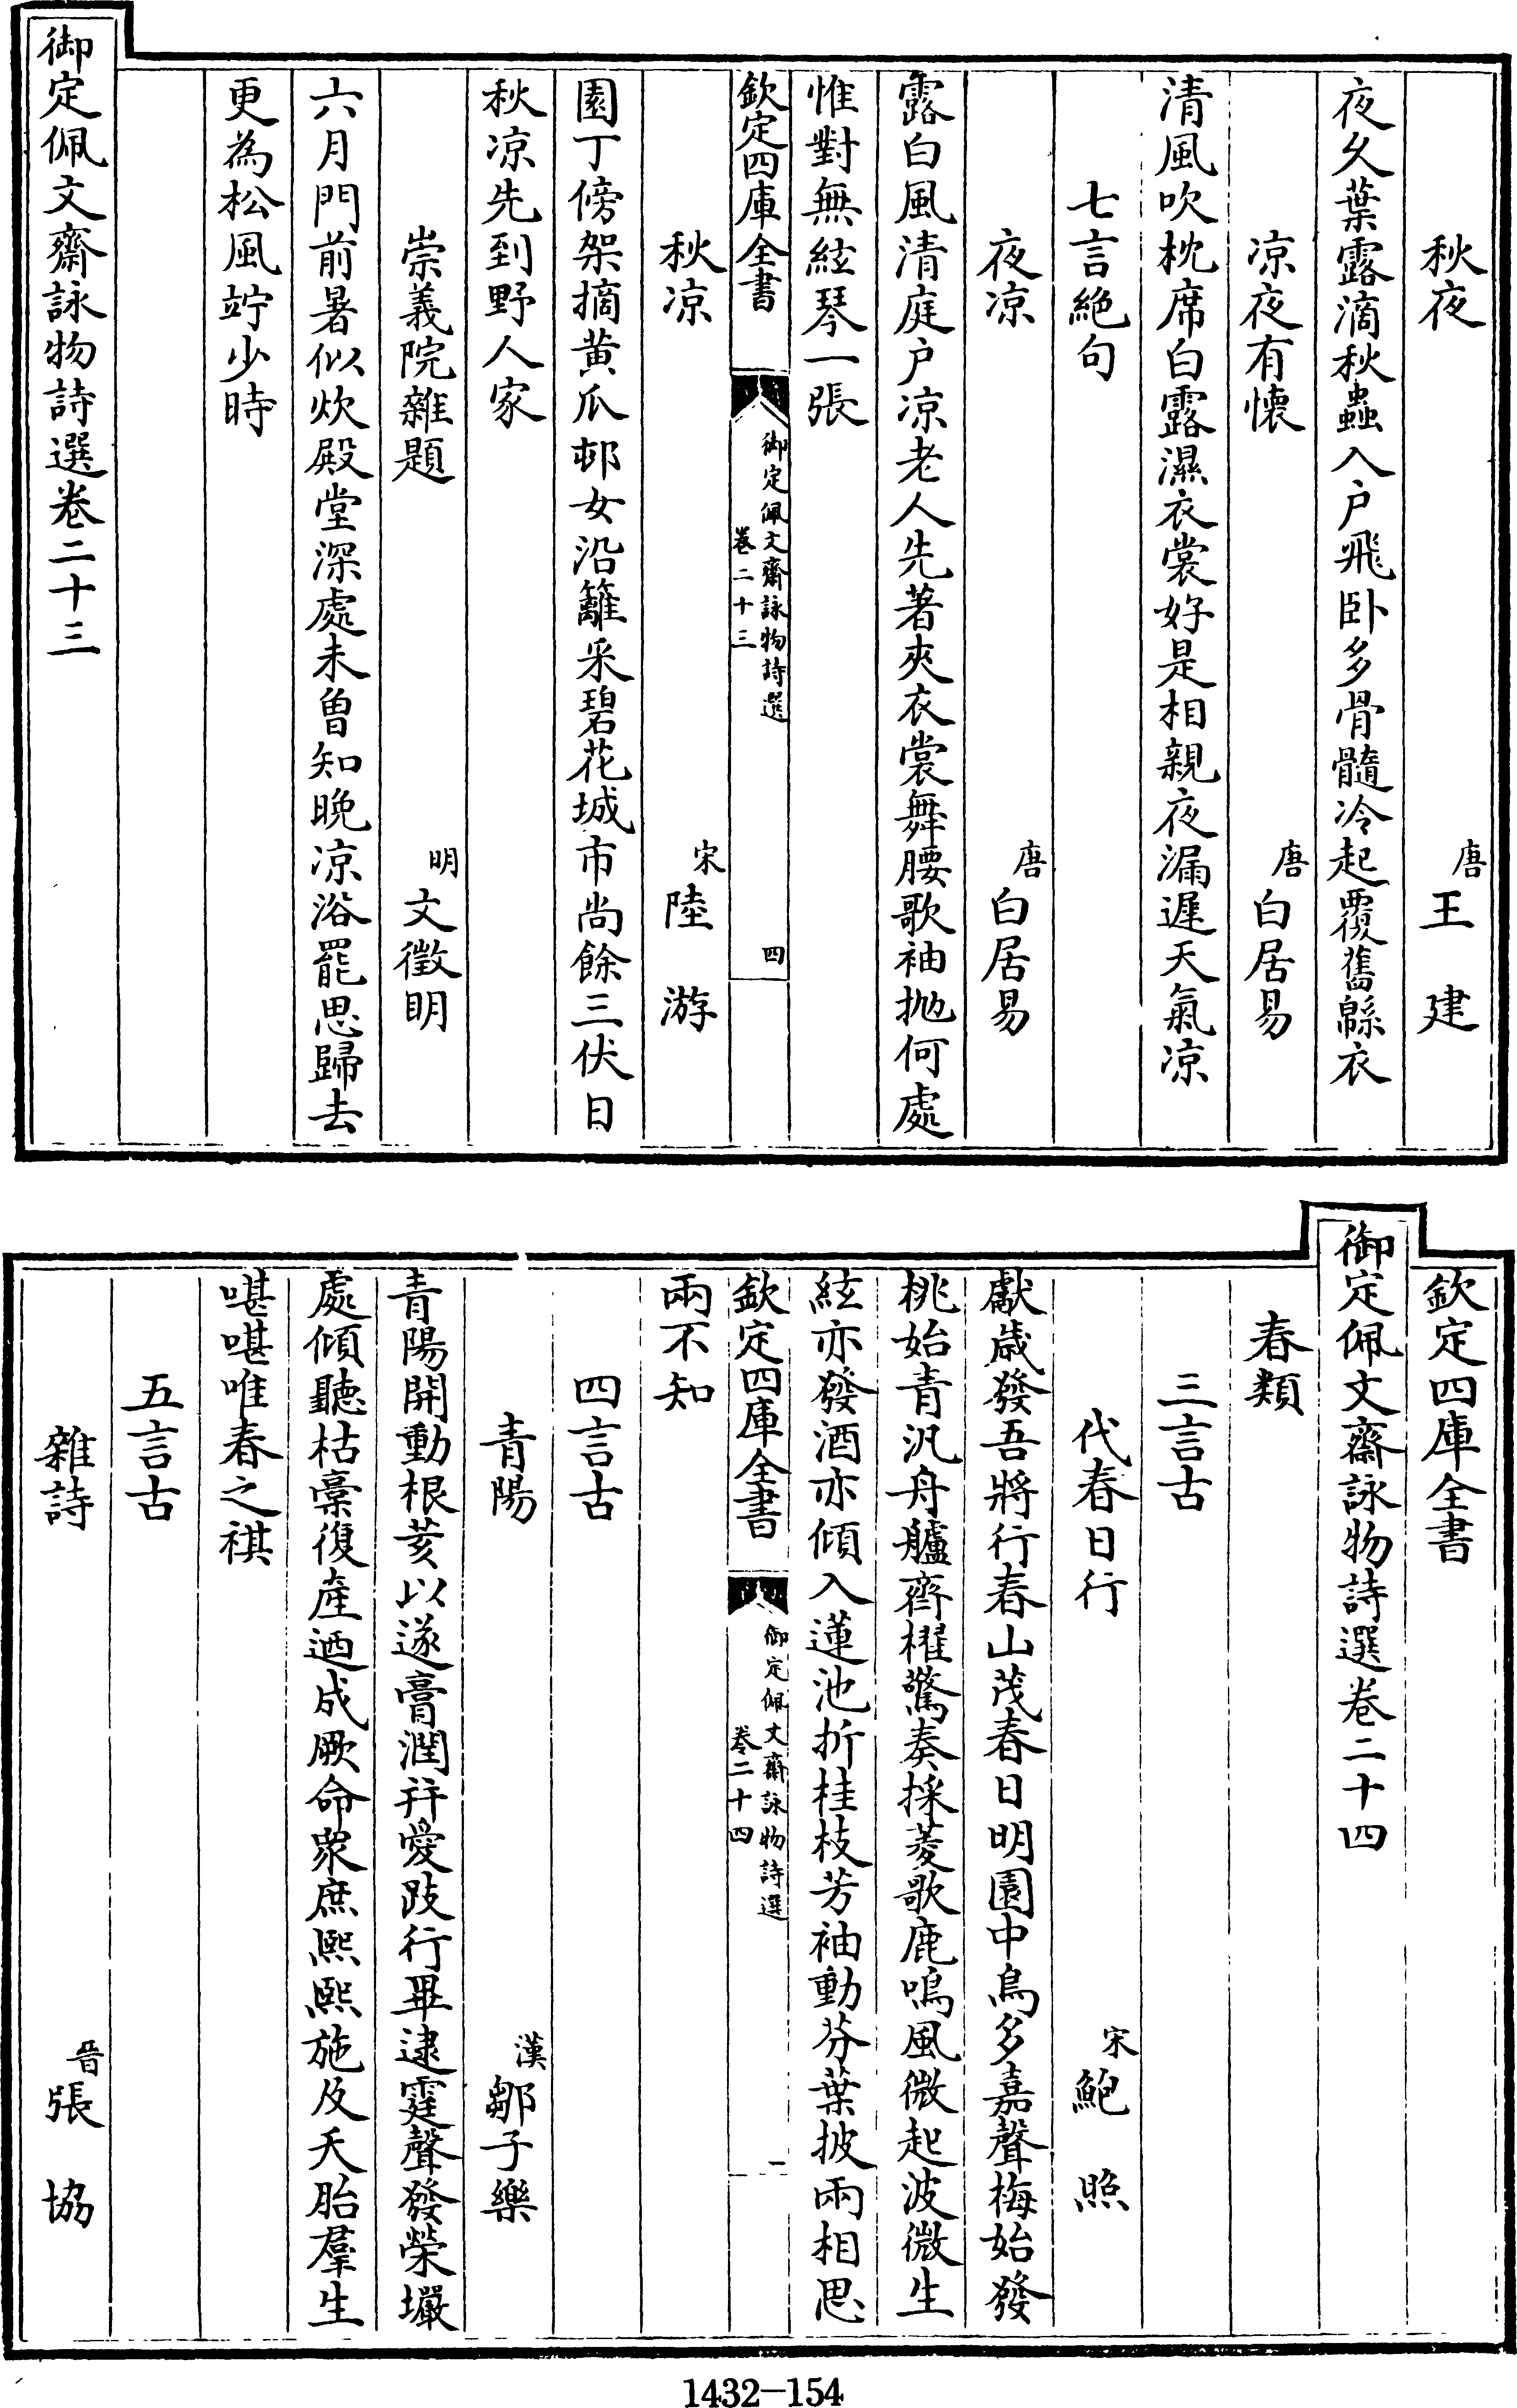 秋夜　唐王建
夜久葉露滴秋蟲入户飛卧多骨髓冷起覆舊緜衣
凉夜有懐　唐白居易
清風吹枕席白露濕衣裳好是相親夜漏遲天氣凉
七言絶句
夜凉　唐白居易
露白風清庭户凉老人先著夾衣裳舞腰歌袖抛何處
惟對無絃琴一張
欽定四庫全書　御定佩文齋詠物詩選　卷二十三　四
秋凉　宋陸游
園丁傍架摘黄瓜邨女沿籬采碧花城市尚餘三伏日
秋凉先到野人家
崇義院雜題　明文徵明
六月門前暑似炊殿堂深處未曾知晚凉浴罷思歸去
更為松風竚少時
御定佩文齋詠物詩選卷二十三
欽定四庫全書
御定佩文齋詠物詩選卷二十四
春類
三言古
代春日行　宋鮑照
獻歲發吾將行春山茂春日明園中鳥多嘉聲梅始發
桃始青汎舟艫齊櫂驚奏採菱歌鹿鳴風微起波微生
絃亦發酒亦傾入蓮池折桂枝芳袖動芬葉披兩相思
兩不知
欽定四庫全書　御定佩文齋詠物詩選　卷二十四　一
四言古
青陽　漢鄒子樂
青陽開動根荄以遂膏潤并愛跂行畢逮霆聲發榮壧
處傾聽枯槀復産迺成厥命衆庶熙熙施及夭胎羣生
啿啿唯春之祺
五言古
雜詩　晉張協
1432-154